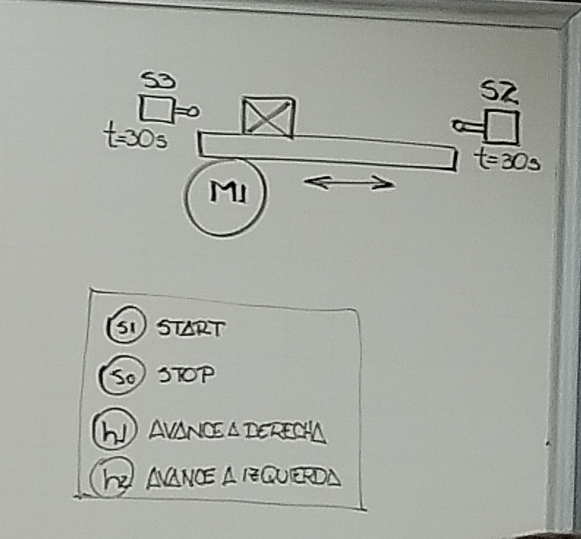 S3
S2
t=30s
t=30s
M1
S1 START
S0 STOP
h1 AVANCE A DERECHA
h2 AVANCE A IZQUERDA